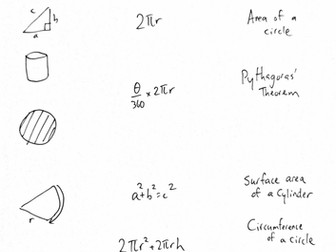 c
b
a
2πr
Area of a
circle
θ/360 × 2πr
Pythagoras'
Theorem
r
a²+b²=c²
Surface area
of a Cylinder
2πr²+2πrh
Circumference
of a circle